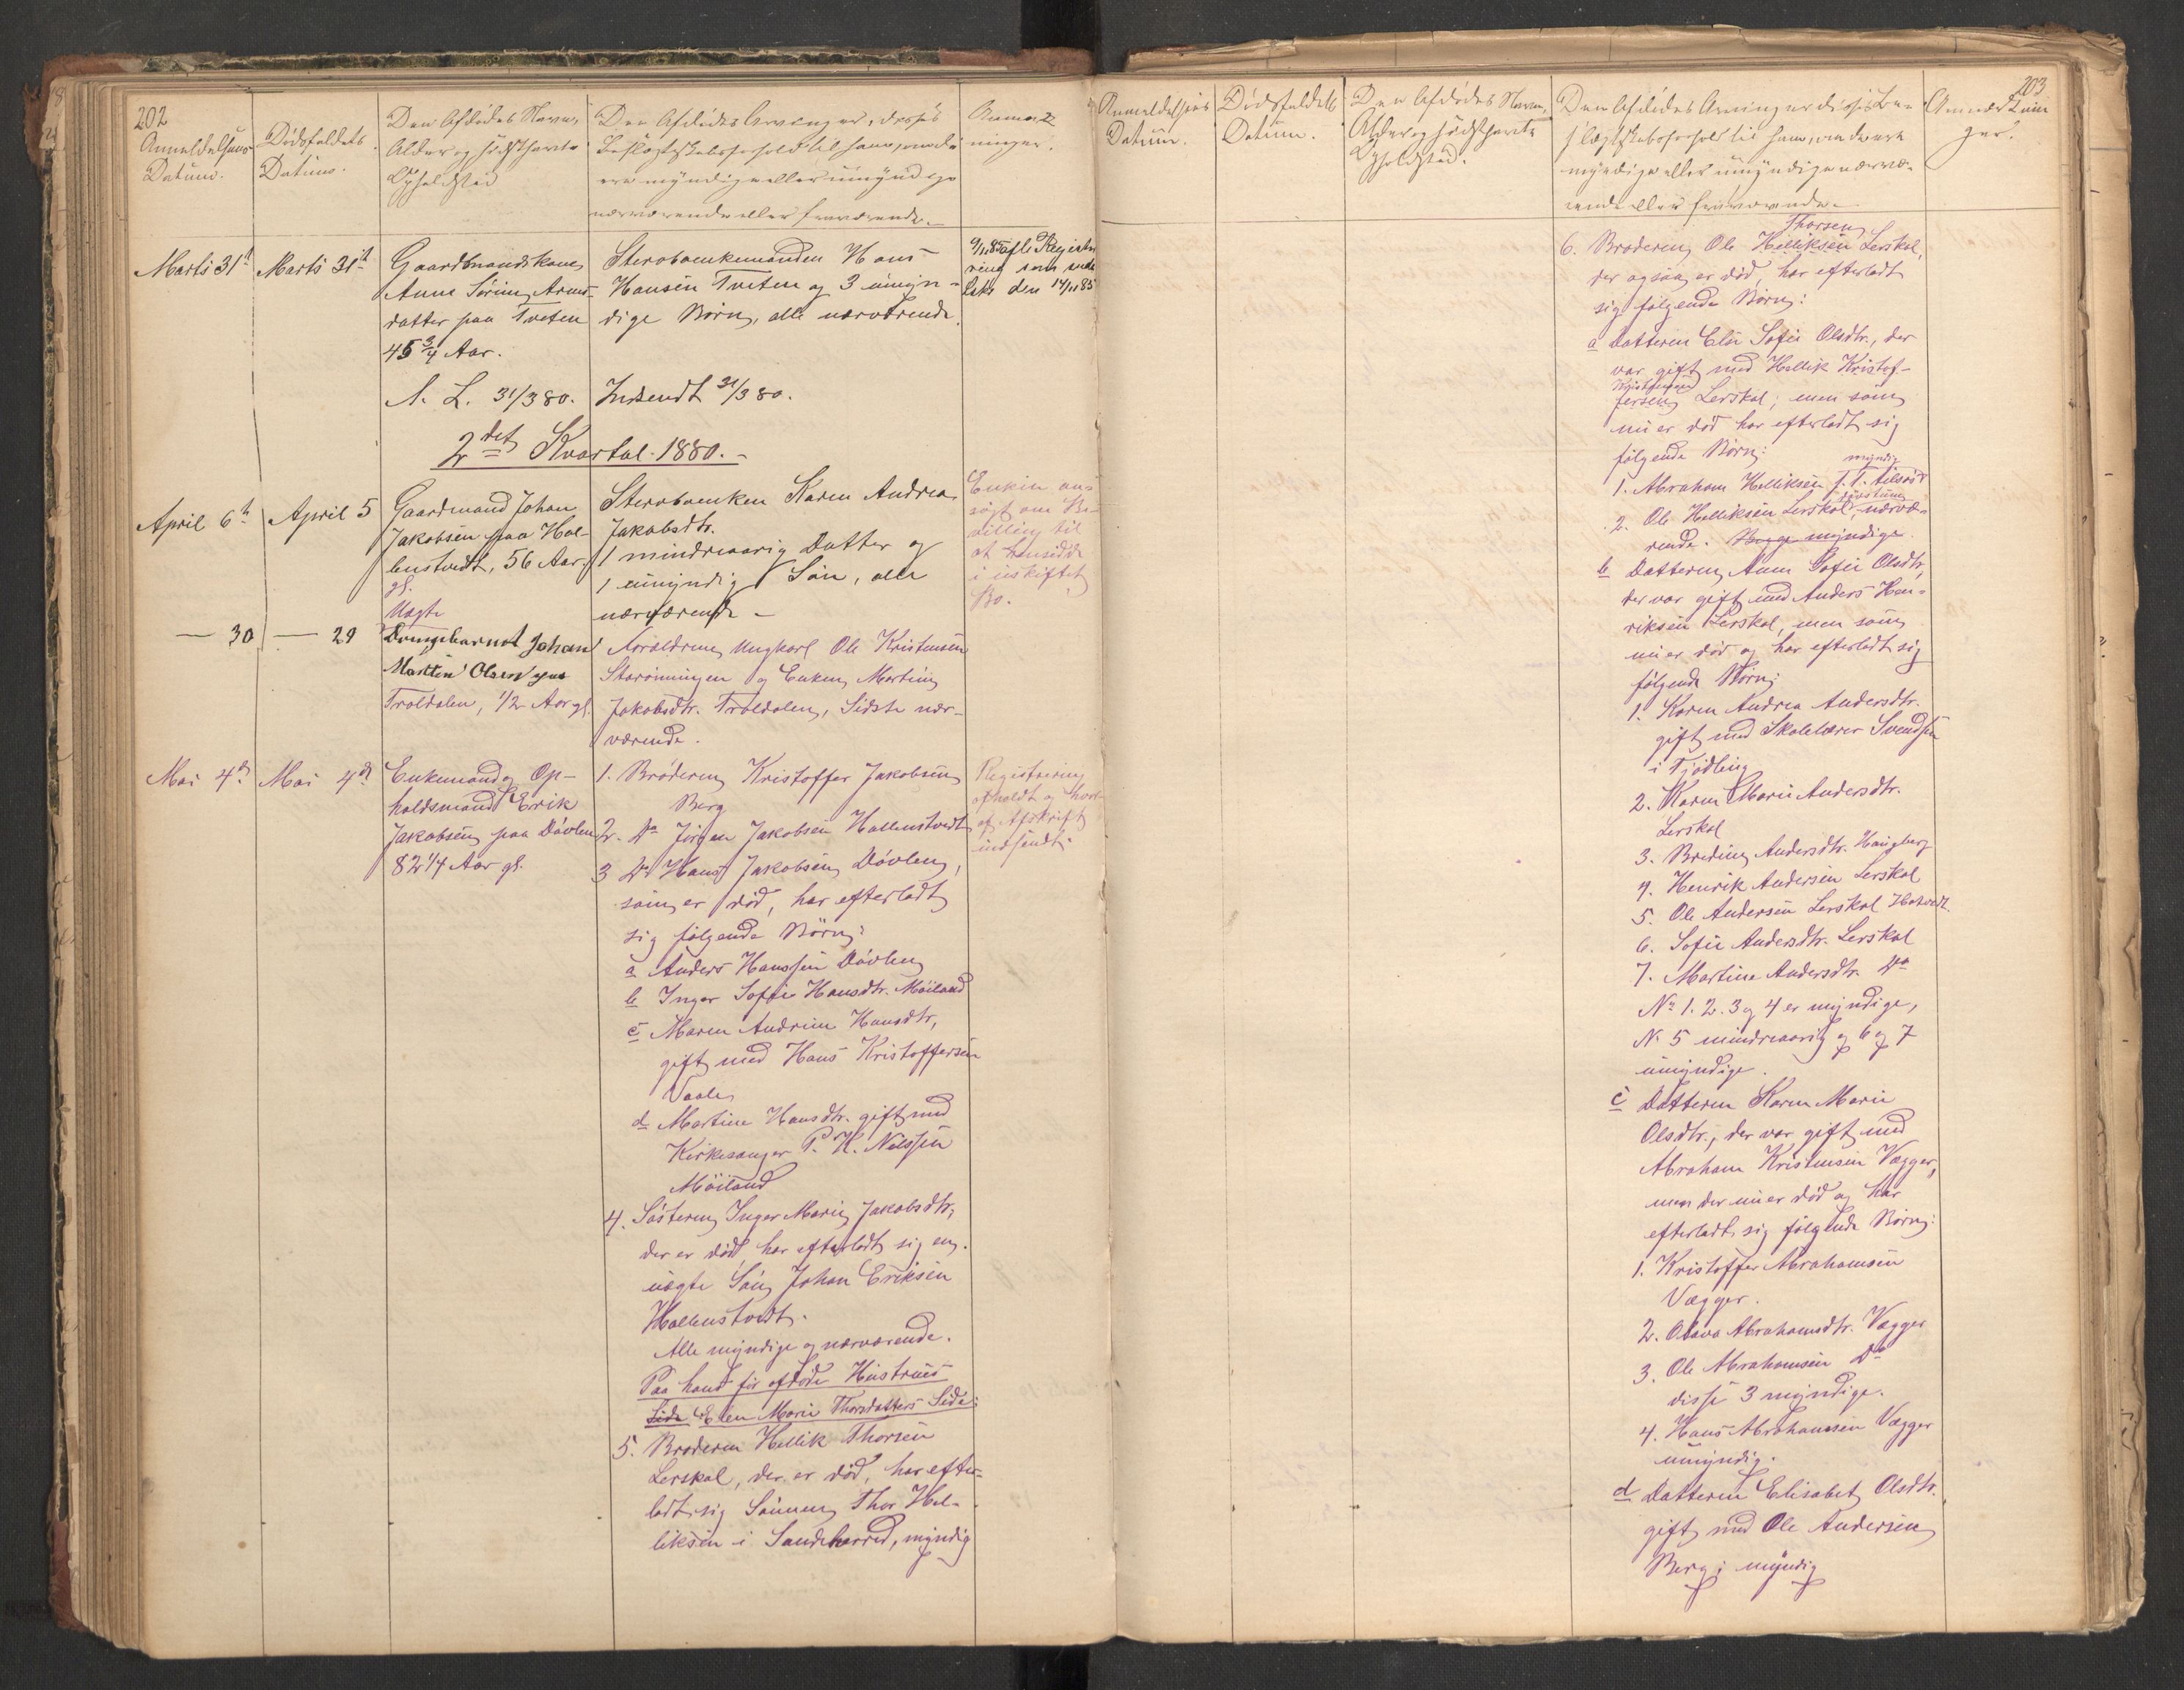 202
Anmeldelsens
Datum.
Dödsfaldets
Datum.
Den Afdödes Navn,
Alder og sidst havte
Opholdsted
Den Afdödes Arvinger, disses
Beslægtskabsforhold til ham, om de
ere myndige eller umyndige
nærværende eller fraværende.
Anmærk
ninger.
Marts 31te
Marts 31te
Gaardmandskone
Anne Sörine Arnts-
datter paa Tveten
45 3/4 Aar.
Sterboenkemanden Hans
Hansen Tveten og 3 umyn-
dige Börn, alle nærværende.
den 14/11 85
A. L. 31/3 80.
Indsendt 31/3 80.
2det Kvartal 1880.
April 6te
April 5
Gaardmand Johan
Jakobsen paa Hal-
lenstvedt, 56 Aar
gl.
Sterboenken Karen Andrea
Jakobsdtr.
1 mindreaarig Datter og
1 umyndig Sön, alle
nærværende
Enken an-
sögt om Be-
villing til
at hensidde
i uskiftet
Bo.
— 30
— 29
Uægte
Drengebarnet Johan
Martin Olsen paa
Troldalen, 1/2 Aar gl.
Forældrene Ungkarl Ole Kristensen
og Enken Martine
Jakobsdtr. Troldalen, Sidste nær-
værende.
Mai 4de
Mai 4de
Enkemand og Op-
holdsmand Erik
Jakobsen paa Dövlen
82 1/4 Aar gl.
1. Broderen Kristoffer Jakobsen
Berg
2. Do Jörgen Jakobsen Hallenstvedt
3 Do Hans Jakobsen Dövlen,
som er död, har efterladt
sig fölgende Börn:
a Anders Hanssen Dövlen
b Inger Sofie Hansdtr. Möiland
c Maren Andrine Hansdtr,
gift med Hans Kristoffersen
Vaale
d Martine Hansdtr. gift med
Kirkesanger P. H. Nilssen
Möiland
4. Sösteren Inger Marie Jakobsdtr,
der er död, har efterladt sig en
uægte Sön Johan Eriksen
Hallenstvedt.
Alle myndige og nærværende.
Paa hans för afdöde Hustrues
Side Elen Marie Thorsdatters Side:
5. Broderen Hellik Thorsen
Lerskal, der er död, har efter-
ladt sig Sönnen Thor Hel-
liksen i Sandeherred, myndig
Registrering
afholdt og hvor-
af Afskrift
indsendt.
203
Anmeldelsens
Datum.
Dödsfaldets
Datum.
Den Afdödes Navn,
Alder og sidst havte
Opholdsted.
Den Afdödes Arvinger disses Be-
slægtskabsforhold til ham, om de ere
myndige eller umyndige nærvæ-
rende eller fraværende.
Anmærknin
ger.
Thorsen
6. Broderen Ole Helliksen Lerskal,
der ogsaa er död, har efterladt
sig fölgende Börn:
a Datteren Else Sofie Olsdtr., der
var gift med Hellik Kristof-
fersen Lerskal; men som
nu er död har efterladt sig
fölgende Börn:
myndig
1. Abraham Helliksen
dövstum
2. Ole Helliksen Lerskal, nærvæ-
rende. Begge myndige.
b Datteren Anne Sofie Olsdtr,
der var gift med Anders Hen-
riksen Lerskal, men som
nu er död og har efterladt sig
fölgende Börn:
1. Karen Andrea Andersdtr.
gift med Skolelærer Svendsen
i Tjödling
2. Karen Marie Andersdtr.
Lerskal
3. Bredine Andersdtr. Haugberg
4. Henrik Andersen Lerskal
5. Ole Andersen Lerskal
6. Sofie Andersdtr. Lerskal
7. Martine Andersdtr. Do
No 1. 2. 3 og 4 er myndige,
No 5 mindreaarig og 6 og 7
umyndige.
c Datteren Karen Marie
Olsdtr., der var gift med
Abraham Kristensen Vægger,
men der nu er död og har
efterladt sig fölgende Börn:
1. Kristoffer Abrahamsen
Vægger.
2. Olava Abrahamsdtr. Vægger
3. Ole Abrahamsen Do
disse 3 myndige.
4. Hans Abrahamsen Vægger
umyndig.
d Datteren Elisabet Olsdtr.
gift med Ole Andersen
Berg; myndig